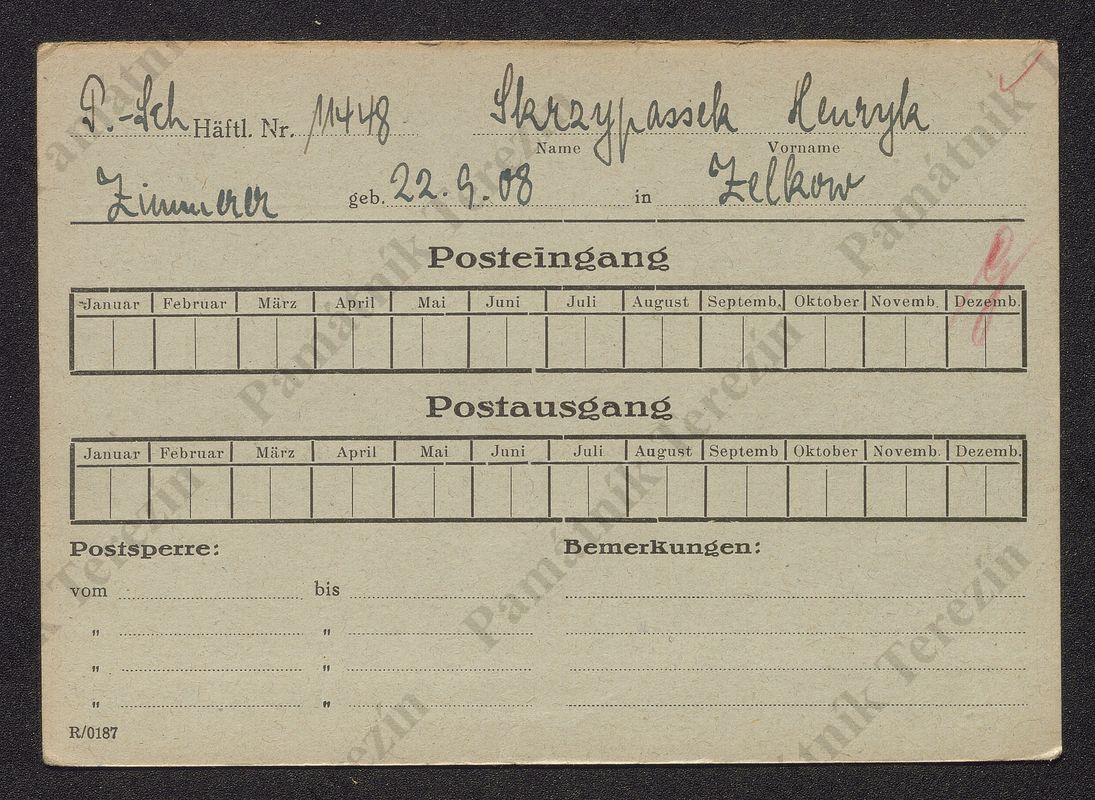 P.-Sch Häftl. Nr. 11448 Skrzypassek Henryk
Name Vorname
Zimmerer geb. 22. 9. 08 in Zelkow
Posteingang
Januar Februar März April Mai Juni Juli August Septemb. Oktober Novemb. Dezemb.
Postausgang
Januar Februar März April Mai Juni Juli August Septemb Oktober Novemb. Dezemb.
Postsperre: Bemerkungen:
vom bis
" "
" "
" "
R/0187
Památník Terezín